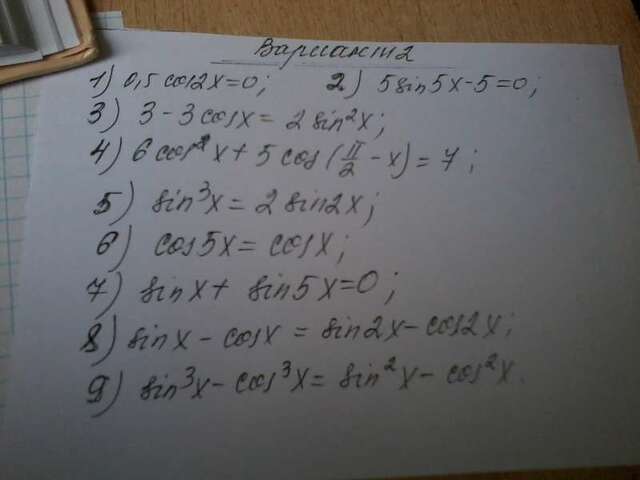 Вариант 2
1) 0,5 cos2x=0; 2) 5sin5x-5=0;
3) 3-3cosx=2sin²x;
4) 6cos²x+5cos(π/2-x)=7;
5) sin³x=2sin2x;
6) cos5x=cosx;
7) sinx+sin5x=0;
8) sinx-cosx=sin2x-cos2x;
9) sin³x-cos³x=sin²x-cos²x.